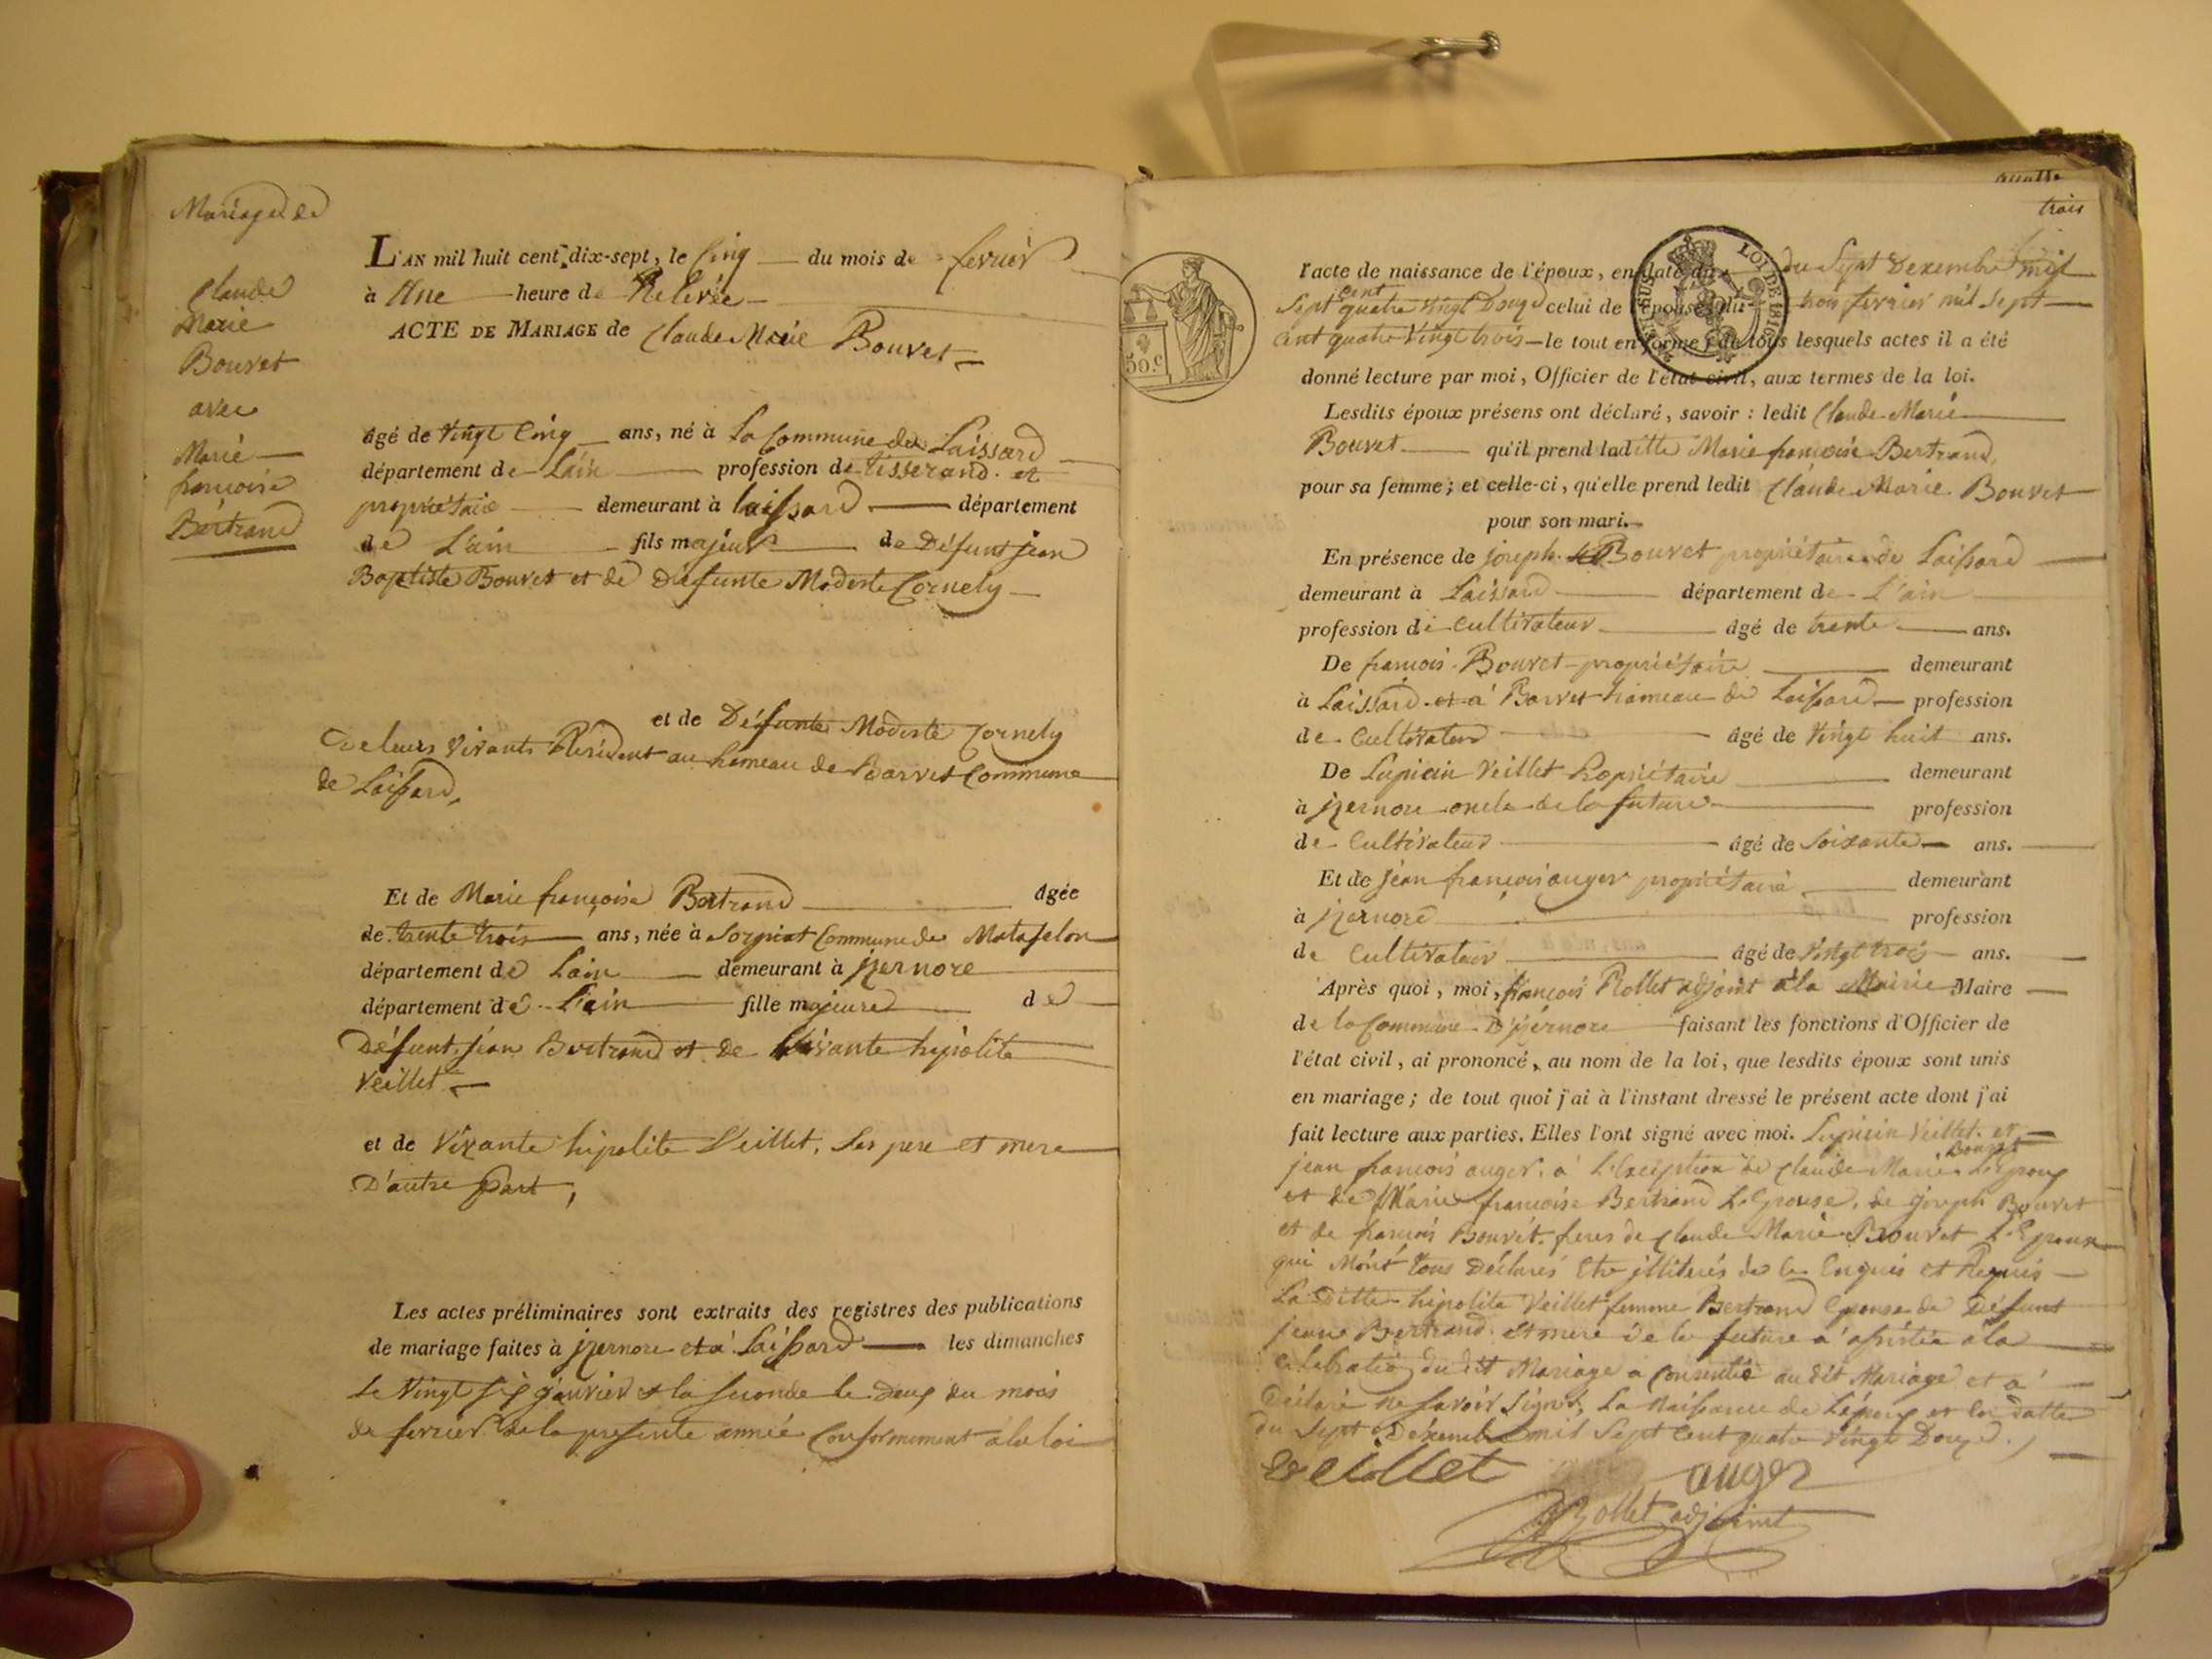 Mariage de
Claude
Marie
Bouvet
avec
Marie
françoise
Bertrand
L'AN mil huit cent dix-sept, le Cinq du mois de fevrier
à Une heure de Relevée
ACTE DE MARIAGE de Claude Marie Bouvet
âgé de Vingt Cinq ans, né à La Commune de Laissard
département de Lain profession de tisserand et
propriétaire demeurant à laissard département
de L'ain fils majeur de Défunt jean
Baptiste Bouvet et de défunte Modeste Cornely
et de Défunte Modeste Cornely
De leurs vivants Residant au hameau de Barvet Commune
de Laissard,
Et de Marie françoise Bertrand âgée
de trente trois ans, née à Sorpiat Commune de Matafelon
département de Lain demeurant à jzernore
département de L'ain fille majeure de
Défunt jean Bertrand et de Vivante hipolite
Veillet
et de Vivante hipolite Veillet, Ses pere et mere
D'autre Part,
Les actes préliminaires sont extraits des registres des publications
de mariage faites à jzernore et à Laissard les dimanches
Le Vingt six janvier et la seconde le Deux du mois
de fevrier de la presente année Conformement à la loi
trois
50.c
LOI DE 1816
EN SUS
l'acte de naissance de l'époux, en date du du Sept Dexembre mil
Sept cent quatre vingt Douze celui de l'épouse, du trois fevrier mil sept
cent quatre Vingt trois le tout en forme; de tous lesquels actes il a été
donné lecture par moi, Officier de l'état civil, aux termes de la loi.
Lesdits époux présens ont déclaré, savoir: ledit Claude Marie
Bouvet qu'il prend laditte Marie françoise Bertrand,
pour sa femme; et celle-ci, qu'elle prend ledit Claude Marie Bouvet
pour son mari.
En présence de joseph Bouvet propriétaire de Laissard
demeurant à Laissard département de L'ain
profession de Cultivateur âgé de trente ans.
De françois Bouvet propriétaire demeurant
à Laissard et à Barvet hameau de Laissard profession
de Cultivateur âgé de Vingt huit ans.
De Lupicin Veillet Propriétaire demeurant
à jzernore oncle de la future profession
de Cultivateur âgé de Soixante ans.
Et de jean françois auger propriétaire demeurant
à jzernore profession
de Cultivateur âgé de Vingt trois ans.
Après quoi, moi, françois Rollet adjoint à la Mairie Maire
de la Commune D'jzernore faisant les fonctions d'Officier de
l'état civil, ai prononcé, au nom de la loi, que lesdits époux sont unis
en mariage; de tout quoi j'ai à l'instant dressé le présent acte dont j'ai
fait lecture aux parties. Elles l'ont signé avec moi. Lupicin Veillet. et
jean françois auger. à L'Exception de Claude Marie Bouvet L'Epoux
et de Marie françoise Bertrand L'Epouse, de joseph Bouvet
et de françois Bouvet freres de Claude Marie Bouvet L'Epoux
qui M'ont tous Déclarés Etre illiterés de ce Enquis et Requis
La Ditte hipolite Veillet femme Bertrand Epouse de Défunt
jean Bertrand et mere de la future a assistée à la
célébration dudit Mariage a Consentie audit Mariage et a
Déclaré ne savoir Signer, La Naissance de L'époux et En datte
du Sept Déxembre mil Sept Cent quatre Vingt Douze.
Veillet auger
Rollet adjoint